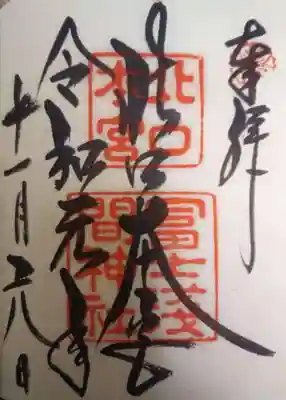 奉拝
北口本宮
令和元年
十一月廿八日
北口
本宮
冨士浅
間神社